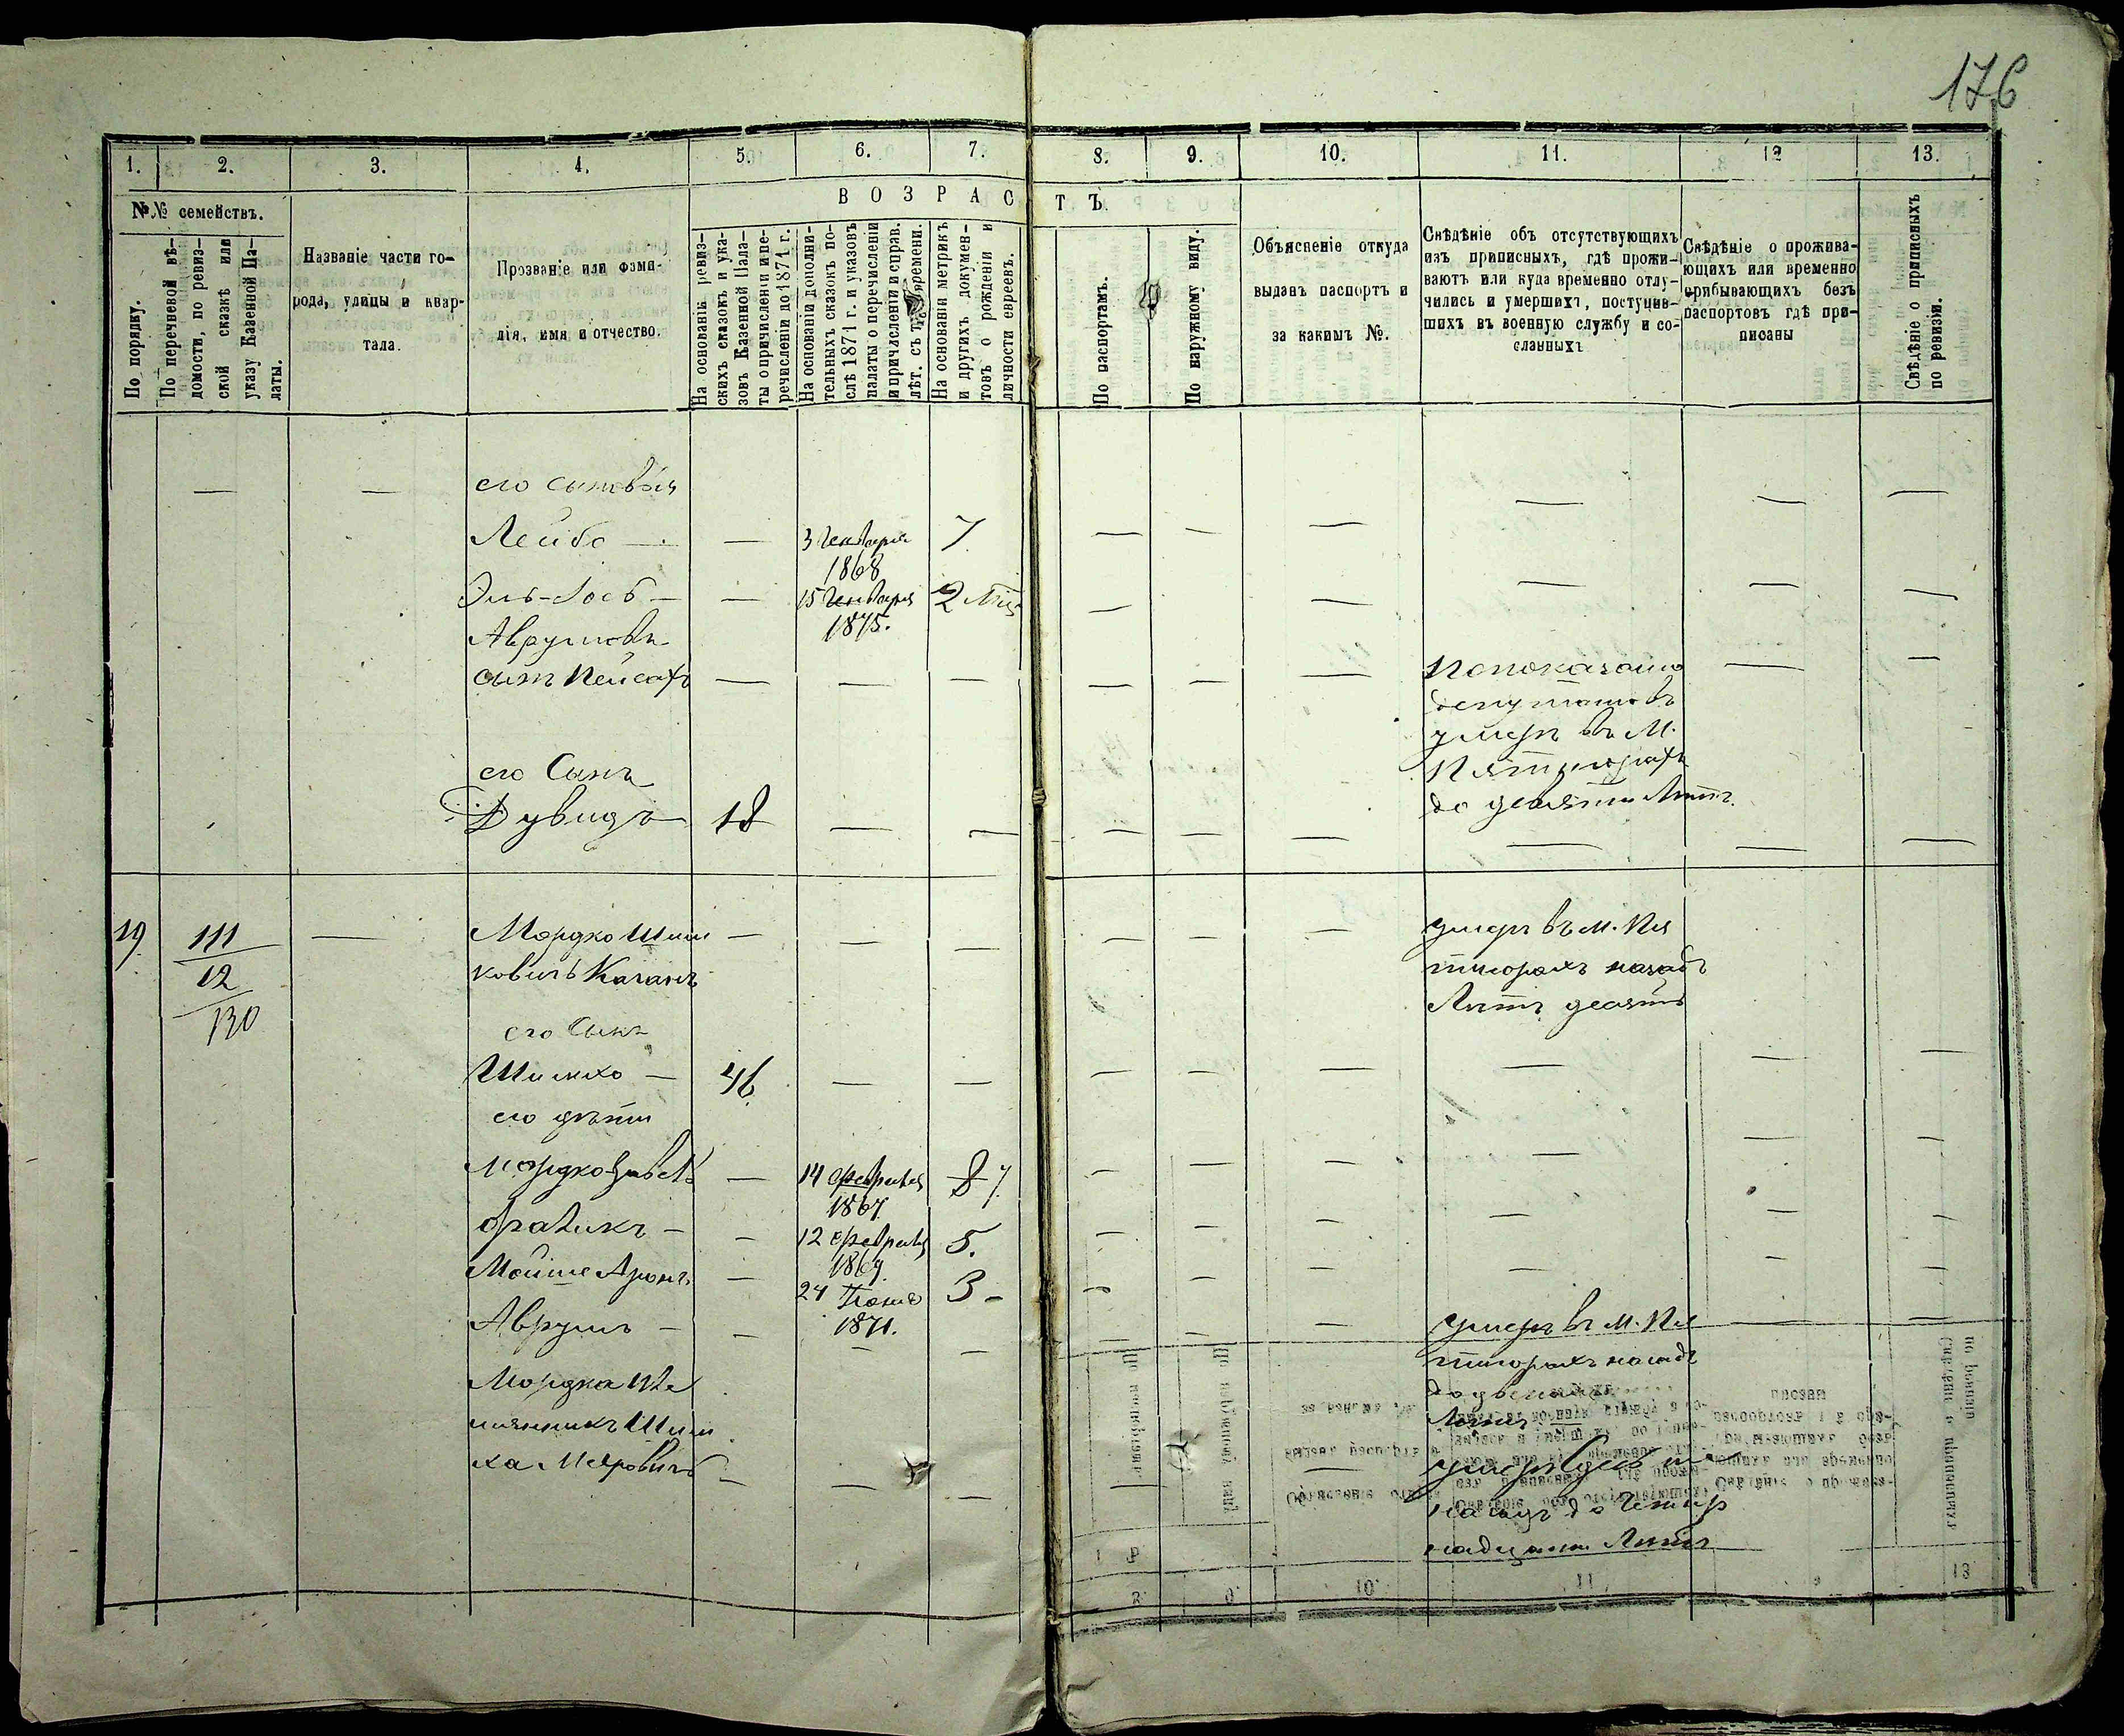 176
1. 2. 3. 4. 5. 6. 7. 8. 9. 10. 11. 12 13.
№№ семействъ.
По порядку.
По перечневой вѣ-
домости, по ревиз-
ской сказкѣ или
указу Казенной Па-
латы.
Названіе части го-
рода, улицы и квар-
тала.
Прозваніе или фами-
лія, имя и отчество.
ВОЗРАСТЪ.
На основаніи ревиз-
скихъ сказокъ и ука-
зовъ Казенной Пала-
ты о причисленіи и пе-
речисленіи до 1871 г.
На основаніи дополни-
тельныхъ сказокъ по-
слѣ 1871 г. и указовъ
палаты о перечисленіи
и причисленіи и справ.
лѣт. съ времени.
На основаніи метрикъ
и другихъ докумен-
товъ о рожденіи и
личности евреевъ.
По паспортамъ.
По наружному виду.
Объясненіе откуда
выданъ паспортъ и
за какимъ №.
Свѣдѣніе объ отсутствующихъ
изъ приписныхъ, гдѣ прожи-
ваютъ или куда временно отлу-
чились и умершихъ, поступив-
шихъ въ военную службу и со-
сланныхъ
Свѣдѣніе о прожива-
ющихъ или временно
прибывающихъ безъ
паспортовъ гдѣ при-
писаны
Свѣдѣніе о приписныхъ
по ревизіи.
его сыновья
Лейба — — 3 Генваря 7
1868
— — 15 Генваря 2
1875.
Аврумовъ
сынъ Пейсахъ
депутатовъ
умеръ въ М.
Пятигорахъ
до девяти Лѣтъ
его Сынъ
Дувидъ 18
19 111 — Мордко Шим — умеръ въ м. Пя
12 ковичъ Каганъ тигорахъ назадъ
130 Лѣтъ десять
его Сынъ
Шимхо — 46
его дѣти
Мордко — 14 февраля 8 7
1867
— 12 февраля 5.
1869.
Мойше Аронъ — 24 Іюня 3 —
1871.
Аврумъ — — умеръ въ м. Пя
тигорахъ назадъ
Мордка Пле
Лѣтъ
мянникъ Шим
ха Мееровичъ — умеръ
назадъ до Четыр
надцати Лѣтъ